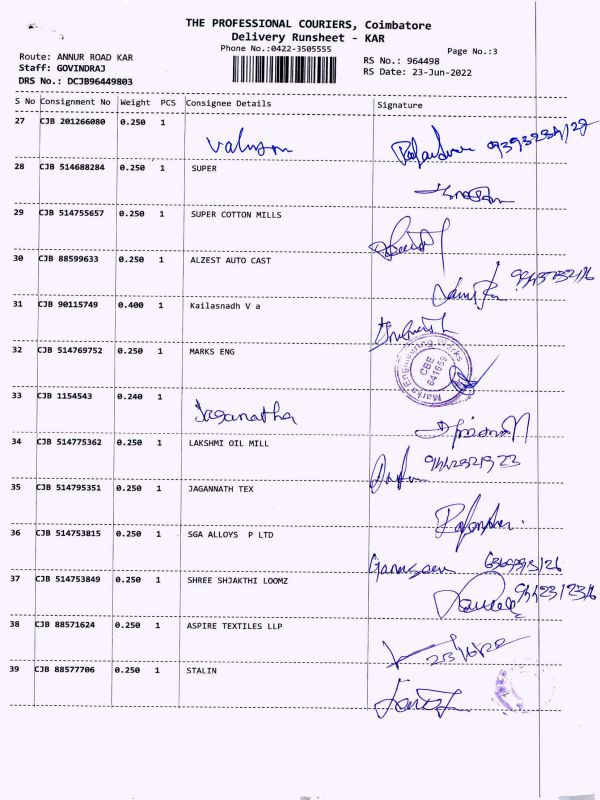 THE PROFESSIONAL COURIERS, Coimbatore
Delivery Runsheet - KAR
Phone No.:0422-3505555
Page No.:3
Route: ANNUR ROAD KAR
RS No.: 964498
Staff: GOVINDRAJ
RS Date: 23-Jun-2022
DRS No.: DCJB96449803
S No Consignment No Weight PCS Consignee Details Signature
27 CJB 201266080 0.250 1
28 CJB 514688284 0.250 1 SUPER
29 CJB 514755657 0.250 1 SUPER COTTON MILLS
30 CJB 88599633 0.250 1 ALZEST AUTO CAST
31 CJB 90115749 0.400 1 Kailasnadh V a
32 CJB 514769752 0.250 1 MARKS ENG
Marks Engineering Works
CBE
641659
33 CJB 1154543 0.240 1 Jaganatha
34 CJB 514775362 0.250 1 LAKSHMI OIL MILL
35 CJB 514795351 0.250 1 JAGANNATH TEX
36 CJB 514753815 0.250 1 SGA ALLOYS P LTD
37 CJB 514753849 0.250 1 SHREE SHJAKTHI LOOMZ
38 CJB 88571624 0.250 1 ASPIRE TEXTILES LLP
23/6/22
39 CJB 88577706 0.250 1 STALIN